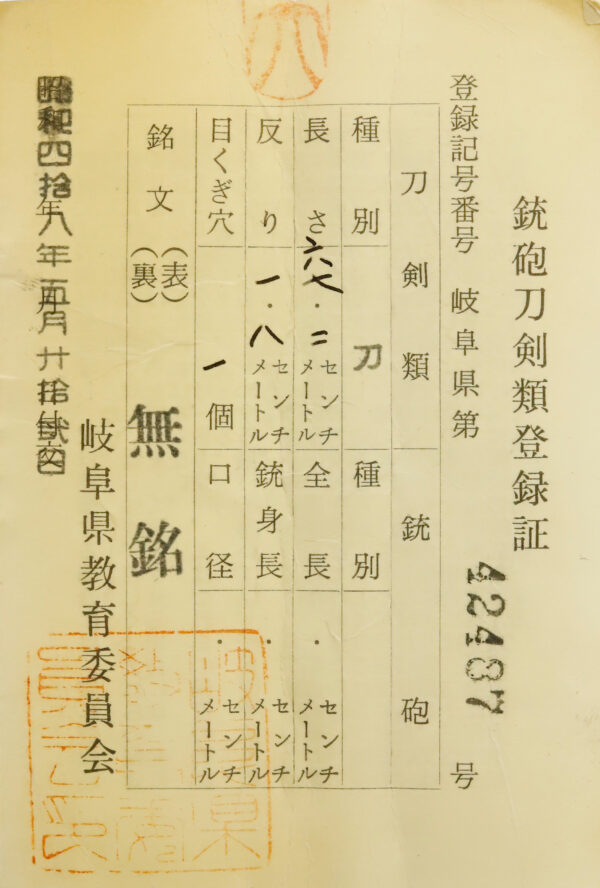 銃砲刀剣類登録証
登録記号番号 岐阜県第 42487 号
刀剣類 銃砲
種別 刀 種別
長さ 六七・二 センチメートル 全長 ・ センチメートル
反り 一・八 センチメートル 銃身長 ・ センチメートル
目くぎ穴 一個 口径 ・ センチメートル
銘文 (表) 無銘
(裏)
昭和四拾八年五月
岐阜県教育委員会